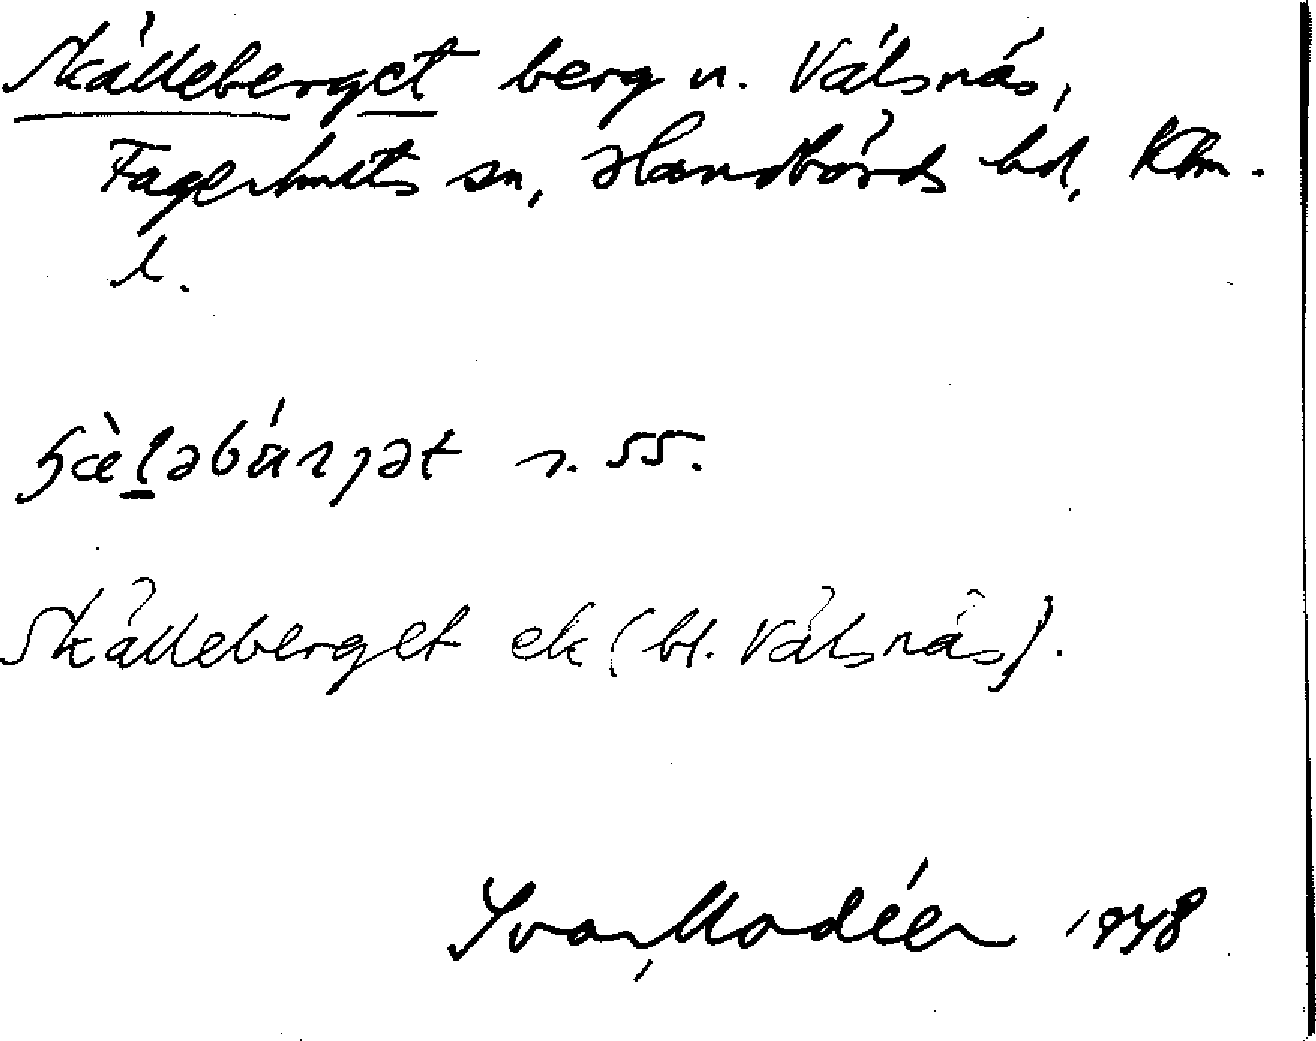 Skälleberget berg n. Välsnäs,
Fagerhults sn, Handbörds hd, Klm.
l.
ɧæ̀ḷəbärjət s. 55.
Skälleberget ek (bl. Välsnäs).
Ivar Modéer 1948